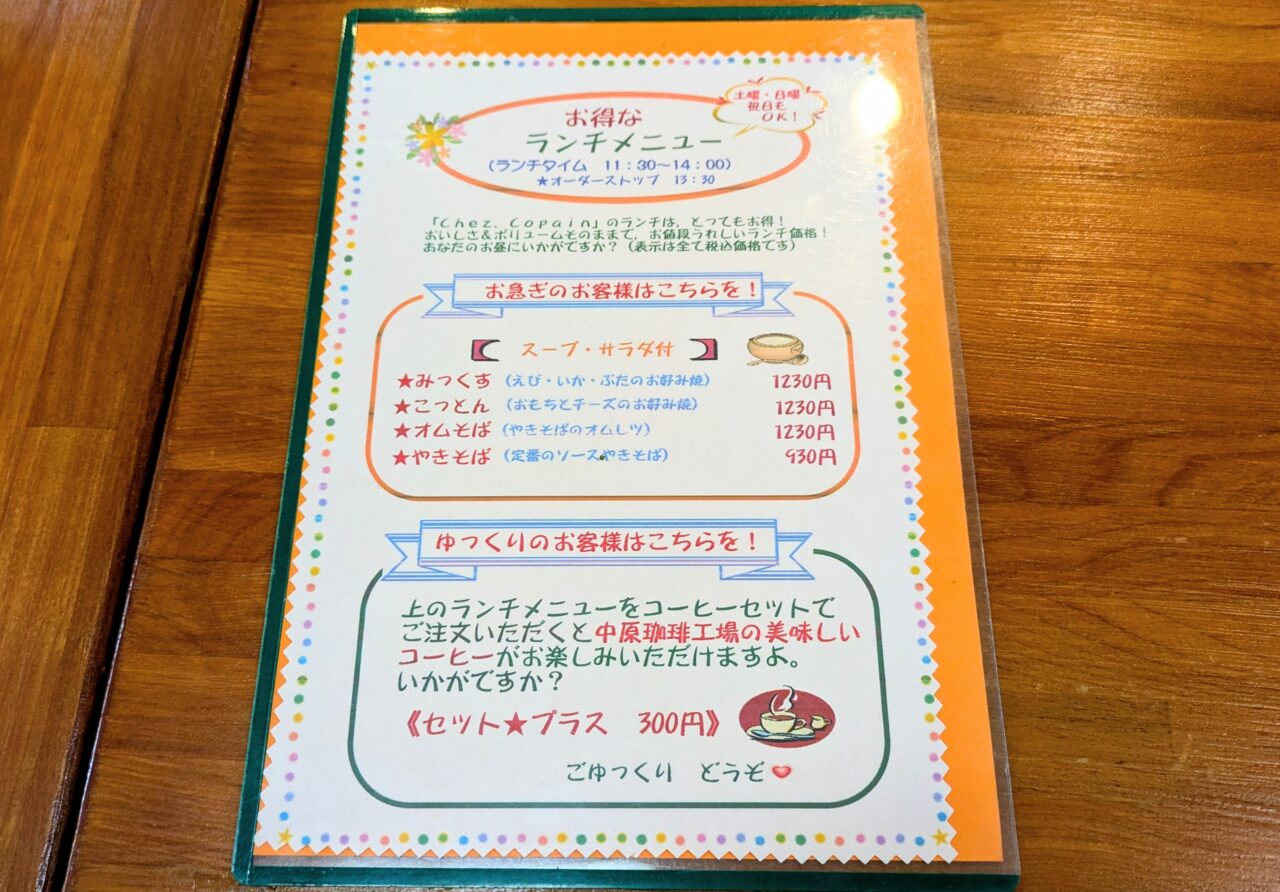 お得な
ランチメニュー
土曜・日曜
祝日も
OK!
(ランチタイム 11:30~14:00)
★オーダーストップ 13:30
「Chez. Copain」のランチは、とってもお得!
おいしさ&ボリュームそのままで、お値段うれしいランチ価格!
あなたのお昼にいかがですか?(表示は全て税込価格です)
お急ぎのお客様はこちらを!
【 スープ・サラダ付 】
★みっくす (えび・いか・ぶたのお好み焼) 1230円
★こっとん (おもちとチーズのお好み焼) 1230円
★オムそば (やきそばのオムレツ) 1230円
★やきそば (定番のソースやきそば) 930円
ゆっくりのお客様はこちらを!
上のランチメニューをコーヒーセットで
ご注文いただくと中原珈琲工場の美味しい
コーヒーがお楽しみいただけますよ。
いかがですか?
《セット★プラス 300円》
ごゆっくり どうぞ